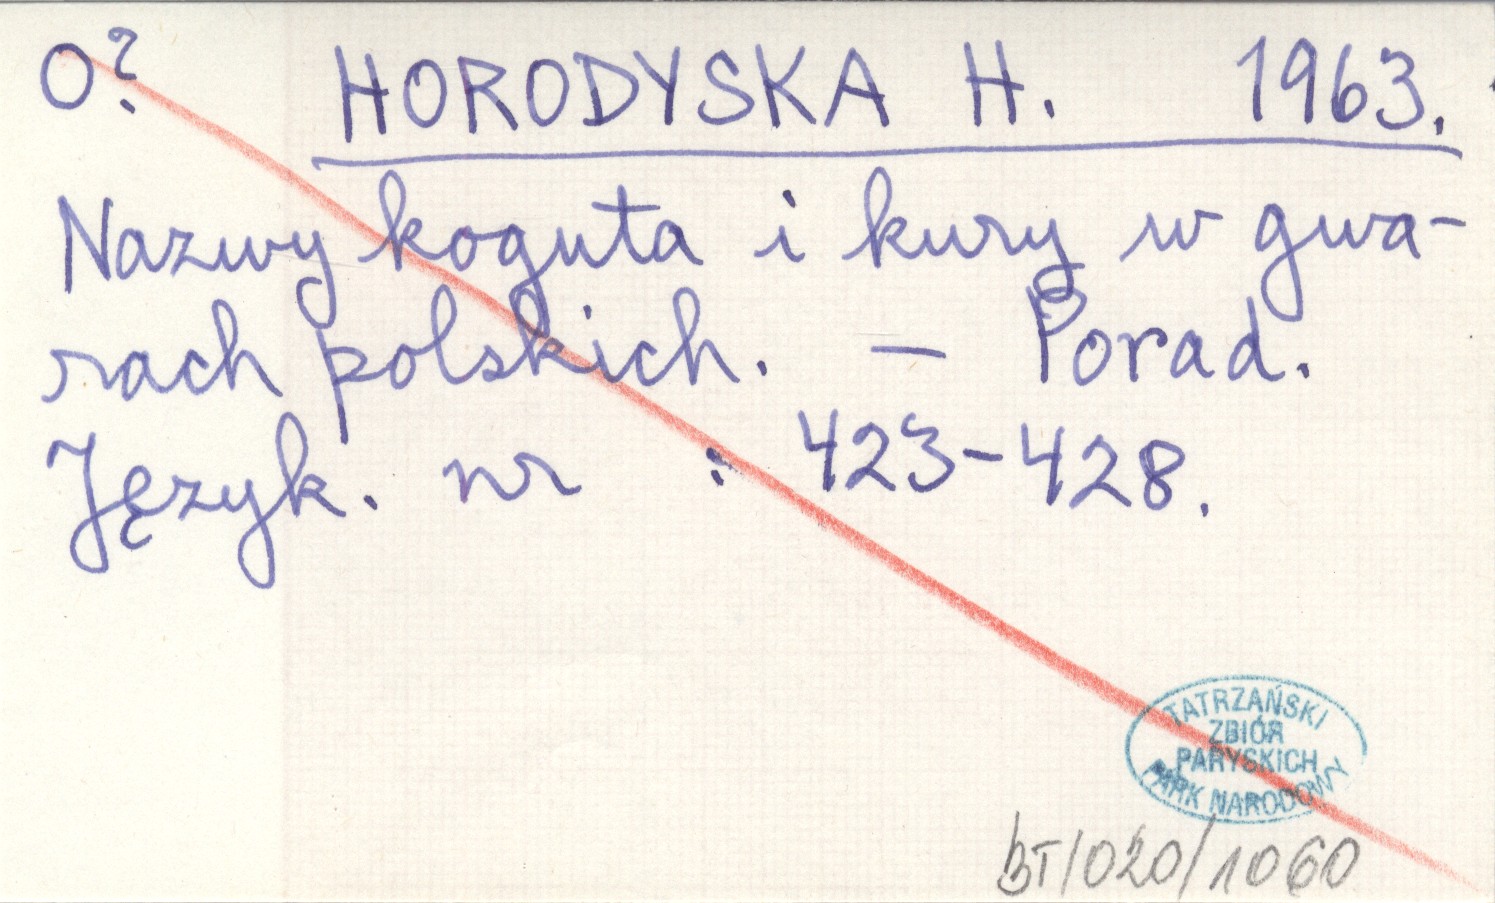 O? HORODYSKA H. 1963.
Nazwy koguta i kury w gwa-
rach polskich. – Porad.
Język. nr : 423-428.
TATRZAŃSKI
ZBIÓR
PARYSKICH
PARK NARODOWY
BT/020/1060